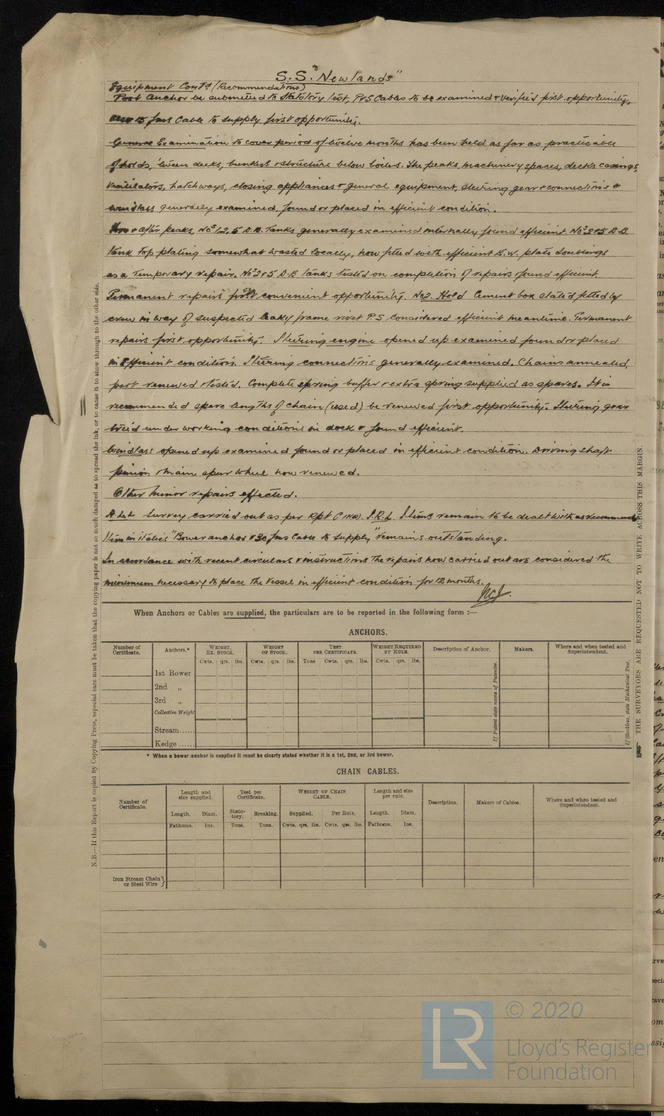 S.S. "Newlands"
Equipment Contd (Recommendations)
Port anchor be submitted to Statutory test, P&S Cables to be examined & verified first opportunity,
15 fms Cable to supply first opportunity.
General Examination to cover period of twelve months has been held as far as practicable
of holds, tween decks, bunkers & structure below boilers. The peaks, machinery spaces, decks casings,
ventilators, hatchways, closing appliances & general equipment, steering gear & connections &
windlass generally examined, found or placed in efficient condition.
Fore & after peaks, No 1, 2, 5 D.B. Tanks generally examined internally found efficient No 3 & 5 D.B
Tank Top plating somewhat wasted locally, now fitted with efficient E.W. plate doublings
as a Temporary repair. No 3 & 5 D.B tanks tested on completion of repairs found efficient
Permanent repairs first convenient opportunity. No2 Hold Cement box stated fitted by
crew in way of suspected leaky frame rivet P.S Considered efficient meantime. Permanent
repairs first opportunity. Steering engine opened up examined found or placed
in efficient condition. Steering connections generally examined. Chains annealed,
part renewed & tested. Complete spring buffer & extra spring supplied as spares. It is
recommended spare lengths of chain (used) be renewed first opportunity. Steering gear
tried under working conditions in dock & found efficient.
Windlass opened up examined found or placed in efficient condition. Driving shaft
pinion & main spur wheel now renewed.
Other minor repairs effected.
Survey carried out as per Rpt C S.R.L. Items remain to be dealt with as recommended
Item in italics "Bower anchor & 30 fms Cable to supply" remains outstanding.
In accordance with recent circulars & instructions the repairs now carried out are considered the
minimum necessary to place the Vessel in efficient condition for 12 months.
When Anchors or Cables are supplied, the particulars are to be reported in the following form :—
ANCHORS.
Number of Certificate. Anchors.* WEIGHT, EX. STOCK. WEIGHT OF STOCK. TEST PER CERTIFICATE. WEIGHT REQUIRED BY RULE. Description of Anchor. Makers. Where and when tested and Superintendent.
Cwts. qrs. lbs. Cwts. qrs. lbs. Tons Cwts. qrs. lbs. Cwts. qrs. lbs.
1st Bower
2nd „
3rd „
Collective Weight
Stream......
Kedge......
If Patent state name of Patentee.
If Steel, state Mechanical Test.
* When a bower anchor is supplied it must be clearly stated whether it is a 1st, 2nd, or 3rd bower.
CHAIN CABLES.
Number of Certificate. Length and size supplied. Test per Certificate. WEIGHT OF CHAIN CABLE. Length and size per rule. Description. Makers of Cables. Where and when tested and Superintendent.
Length. Diam. Statutory. Breaking. Supplied. Per Rule. Length. Diam.
Fathoms. Ins. Tons. Tons. Cwts. qrs. lbs. Cwts. qrs. lbs. Fathoms. Ins.
Iron Stream Chain or Steel Wire }
N.B.—If this Report is copied by Copying Press, especial care must be taken that the copying paper is not so much damped as to spread the ink, or to cause it to show through to the other side.
THE SURVEYORS ARE REQUESTED NOT TO WRITE ACROSS THIS MARGIN.
LR
© 2020
Lloyd's Register
Foundation